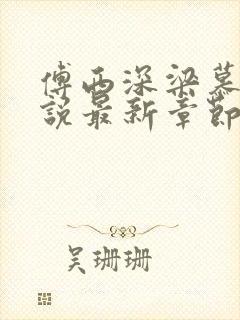 傅西深梁慕
說最新章節
吴珊珊